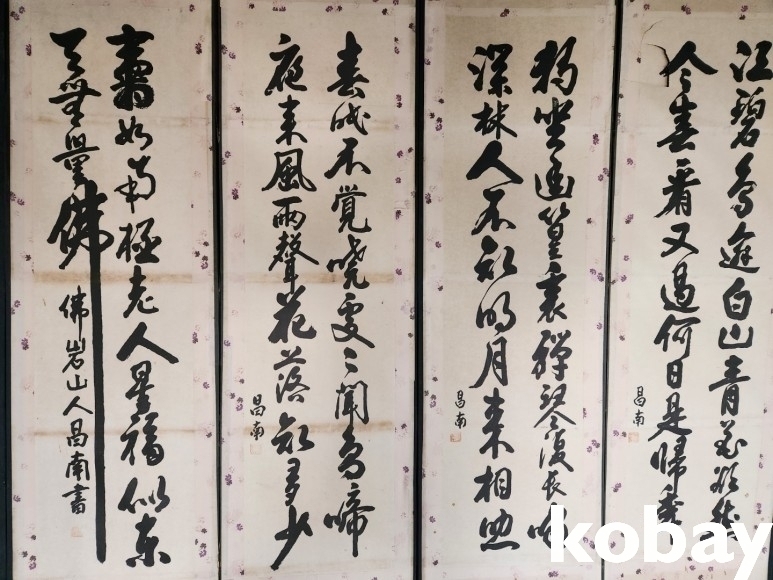 江碧鳥逾白山青花欲然
今春看又過何日是歸年
昌南
獨坐幽篁裏彈琴復長嘯
深林人不知明月來相照
昌南
春眠不覺曉處々聞鳥啼
夜来風雨聲花落知多少
昌南
壽如南極老人星福似東
天無量佛
佛岩山人昌南書
kobay